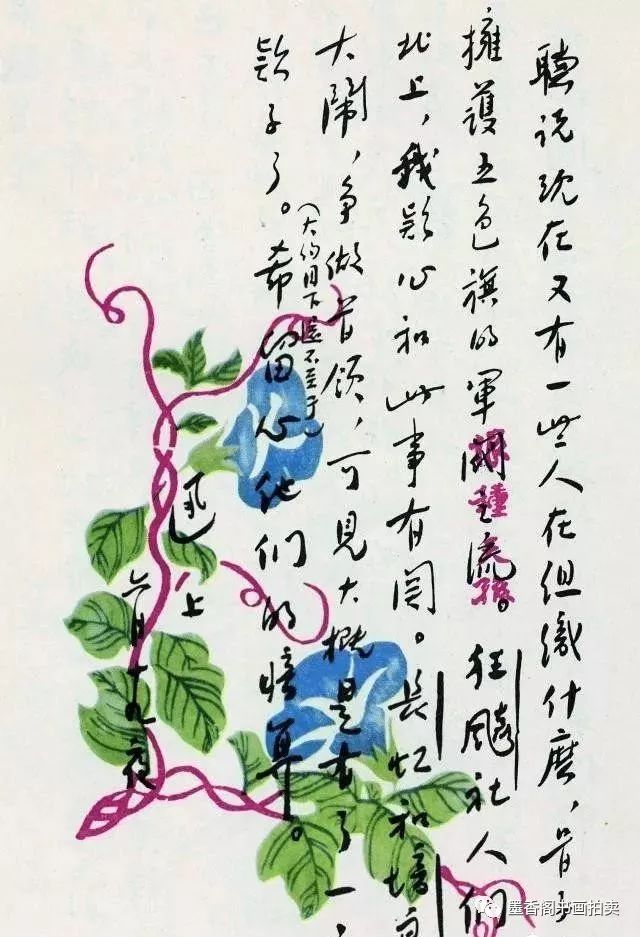 聽说现在又有一些人在组織什麽，骨子
擁護五色旗的軍閥之流。狂飈社人们
北上，我疑心和此事有関。長虹和培
大鬧，争做首领，可見大概是有了一
欵子了。（大约目下還不至于）希留心他们的暗算。
迅 上
六月十九夜
墨香阁书画拍卖